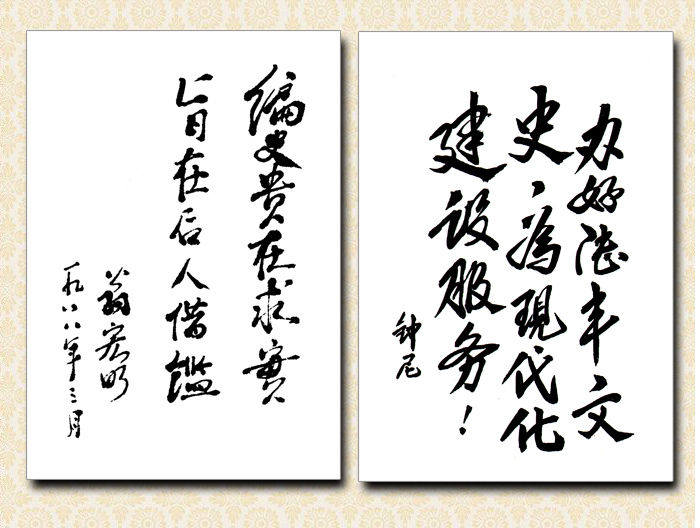 办好陸丰文
史、為現代化
建设服务！
钟尼
编史貴在求實
旨在后人借鑑
翁宏明
一九八八年三月